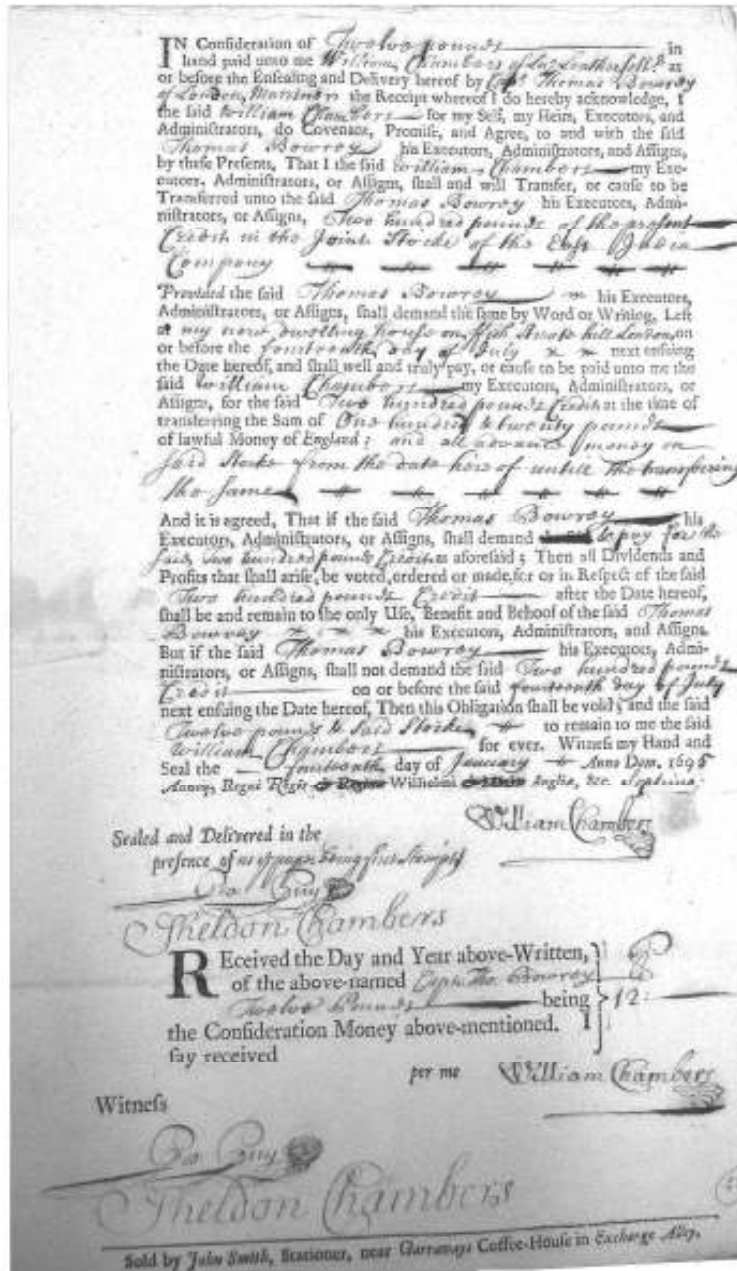 IN Consideration of Twelve pounds in
hand paid unto me William Chambers of Lo: Leatherseller at
or before the Ensealing and Delivery hereof by Capt. Thomas Bowrey
of London, Marriner the Receipt whereof I do hereby acknowledge, I
the said William Chambers for my Self, my Heirs, Executors, and
Administrators, do Covenant, Promise, and Agree, to and with the said
Thomas Bowrey his Executors, Administrators, and Assigns,
by these Presents, That I the said William Chambers my Exe-
cutors, Administrators, or Assigns, shall and will Transfer, or cause to be
Transferred unto the said Thomas Bowrey his Executors, Admi-
nistrators, or Assigns, Two hundred pounds of the present
Credit in the Joint Stocke of the East India
Company
Provided the said Thomas Bowrey his Executors,
Administrators, or Assigns, shall demand the same by Word or Writing, Left
at my now dwelling house on London, on
or before the fourteenth day of July next ensuing
the Date hereof, and shall well and truly pay, or cause to be paid unto me the
said William Chambers my Executors, Administrators, or
Assigns, for the said Two hundred pounds Credit at the time of
transferring the Sum of One hundred & twenty pounds
of lawful Money of England; and all advance money on
said Stocke from the date hereof untill the transfering
the same
And it is agreed, That if the said Thomas Bowrey his
Executors, Administrators, or Assigns, shall demand & pay for the
said Two hundred pounds Credit as aforesaid; Then all Dividends and
Profits that shall arise, be voted, ordered or made, for or in Respect of the said
Two hundred pounds Credit after the Date hereof,
shall be and remain to the only Use, Benefit and Behoof of the said Thomas
Bowrey his Executors, Administrators, and Assigns.
But if the said Thomas Bowrey his Executors, Admi-
nistrators, or Assigns, shall not demand the said Two hundred pounds
Credit on or before the said fourteenth day of July
next ensuing the Date hereof, Then this Obligation shall be void; and the said
Twelve pounds & said Stocke to remain to me the said
William Chambers for ever. Witness my Hand and
Seal the fourteenth day of January Anno Dom. 1695
Annoq; Regni Regis Anglia, &c. Septimo
William Chambers
Sealed and Delivered in the
presence of us
Guy
Sheldon Chambers
REceived the Day and Year above-Written,
of the above-named Capt. Tho. Bowrey
Twelve Pounds being 12
the Consideration Money above-mentioned. I
say received
per me William Chambers
Witness
Guy
Sheldon Chambers
Sold by John Smith, Stationer, near Garraways Coffee-House in Exchange Alley.